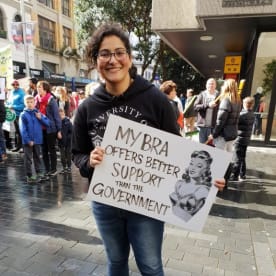 UNIVERSITY OF
MY BRA
OFFERS BETTER
SUPPORT
THAN THE
GOVERNMENT